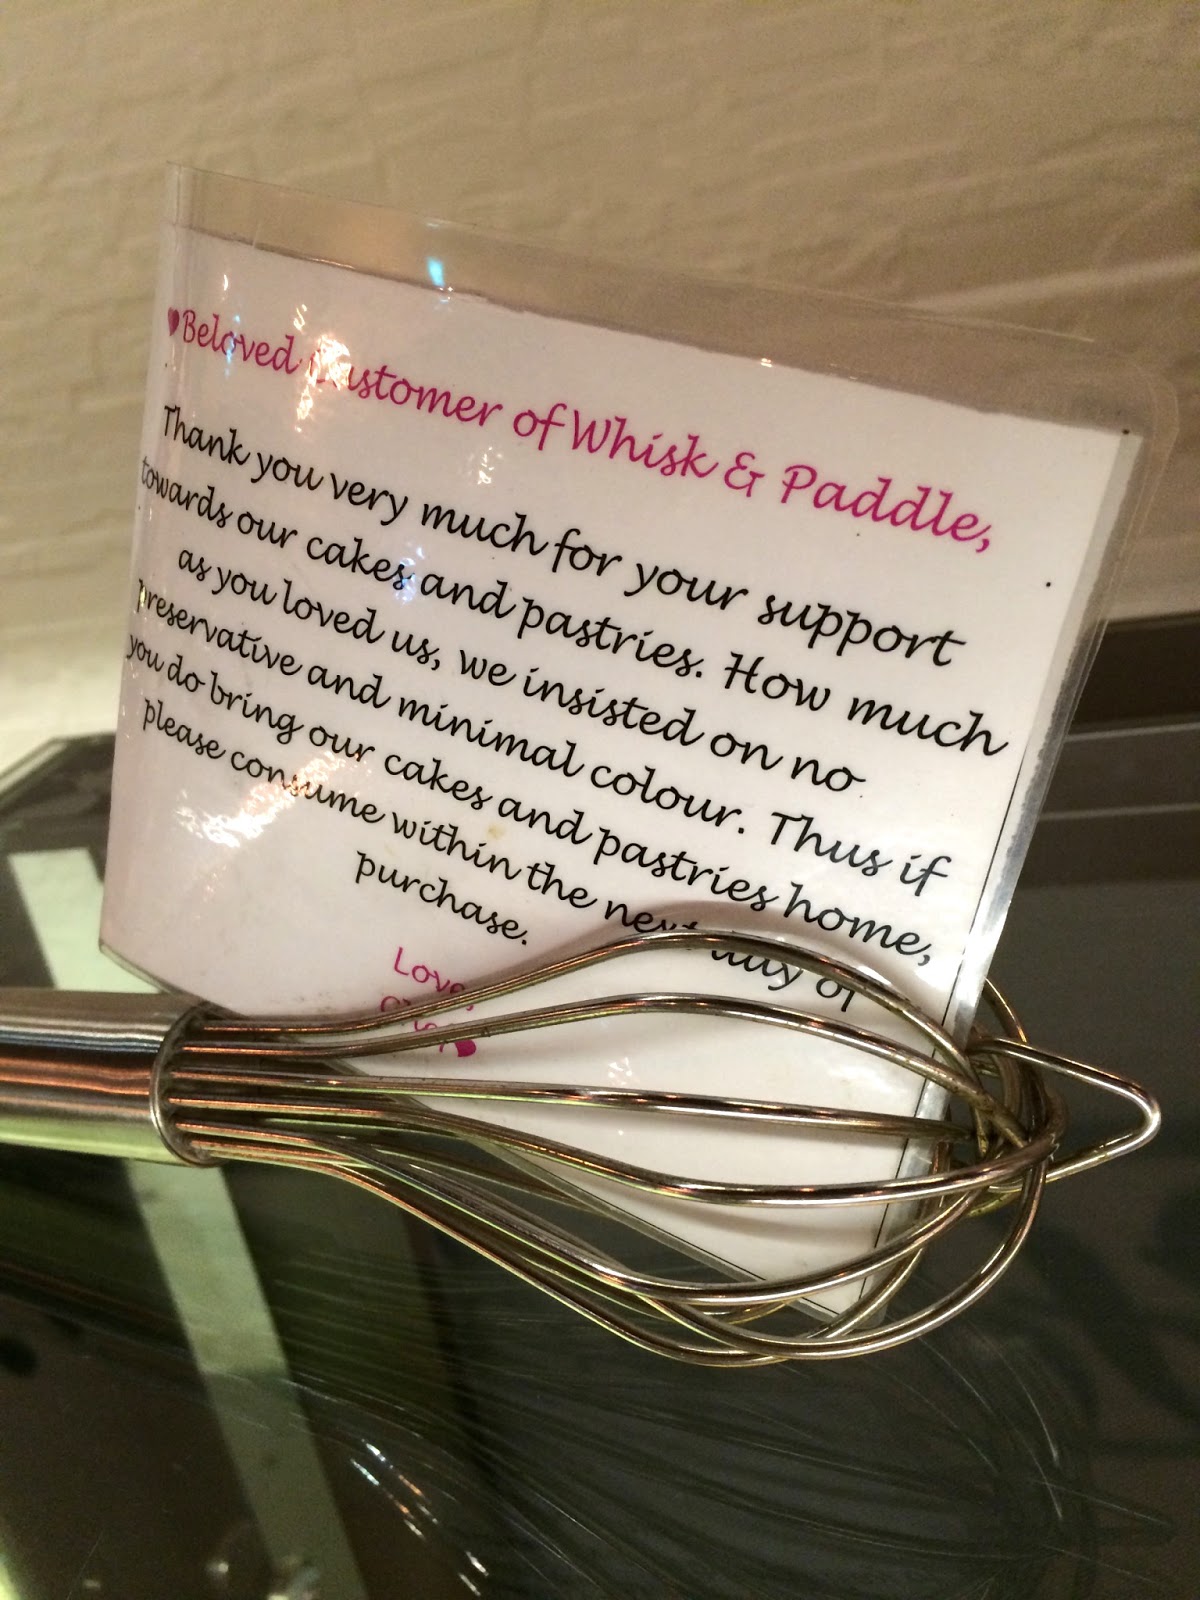 ♥Beloved Customer of Whisk & Paddle,
Thank you very much for your support
towards our cakes and pastries. How much
as you loved us, we insisted on no
preservative and minimal colour. Thus if
you do bring our cakes and pastries home,
please consume within the next day of
purchase.
Love,